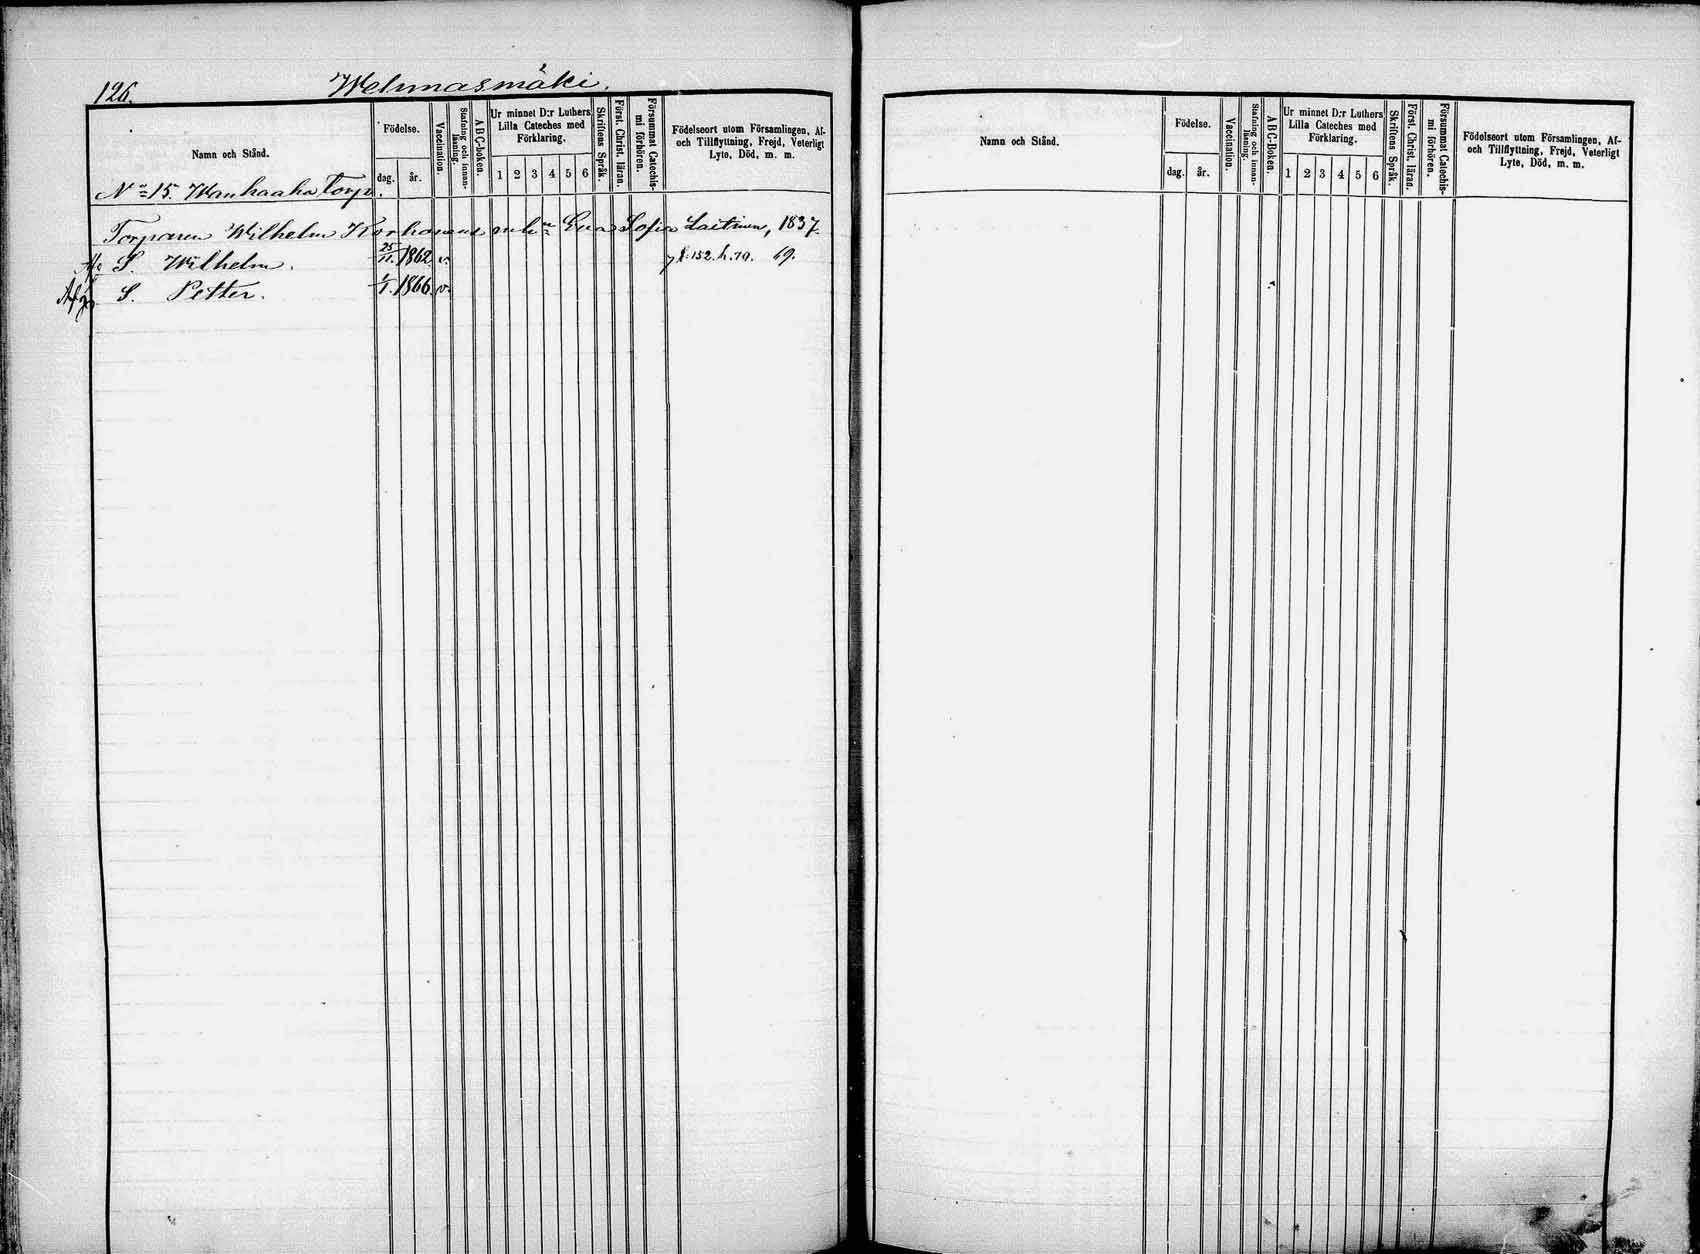 126.
Wehmasmäki.
Namn och Stånd.
Födelse.
dag.
år.
Vaccination.
Stafning och innan-läsning.
ABC-boken.
Ur minnet D:r Luthers
Lilla Cateches med
Förklaring.
1 2 3 4 5 6
Skriftens Språk.
Först. Christ. läran.
Försummat Catechis-
mi förhören.
Födelseort utom Församlingen, Af-
och Tillflyttning, Frejd, Veterligt
Lyte, Död, m. m.
No 15. Wanhaaha Torp.
Torparen Wilhelm Korhonens enka Eva Sofia Laitinen, 1837.
S. Wilhelm. 25/11. 1862. v. f. 152. h. 79. 69.
Afg. S. Petter. 1/1. 1866. v.
Namn och Stånd.
Födelse.
dag.
år.
Vaccination.
Stafning och innan-
läsning.
ABC-Boken.
Ur minnet D:r Luthers
Lilla Cateches med
Förklaring.
1 2 3 4 5 6
Skriftens Språk.
Först. Christ. läran.
Försummat Catechis-
mi förhören.
Födelseort utom Församlingen, Af-
och Tillflyttning, Frejd, Veterligt
Lyte, Död, m. m.